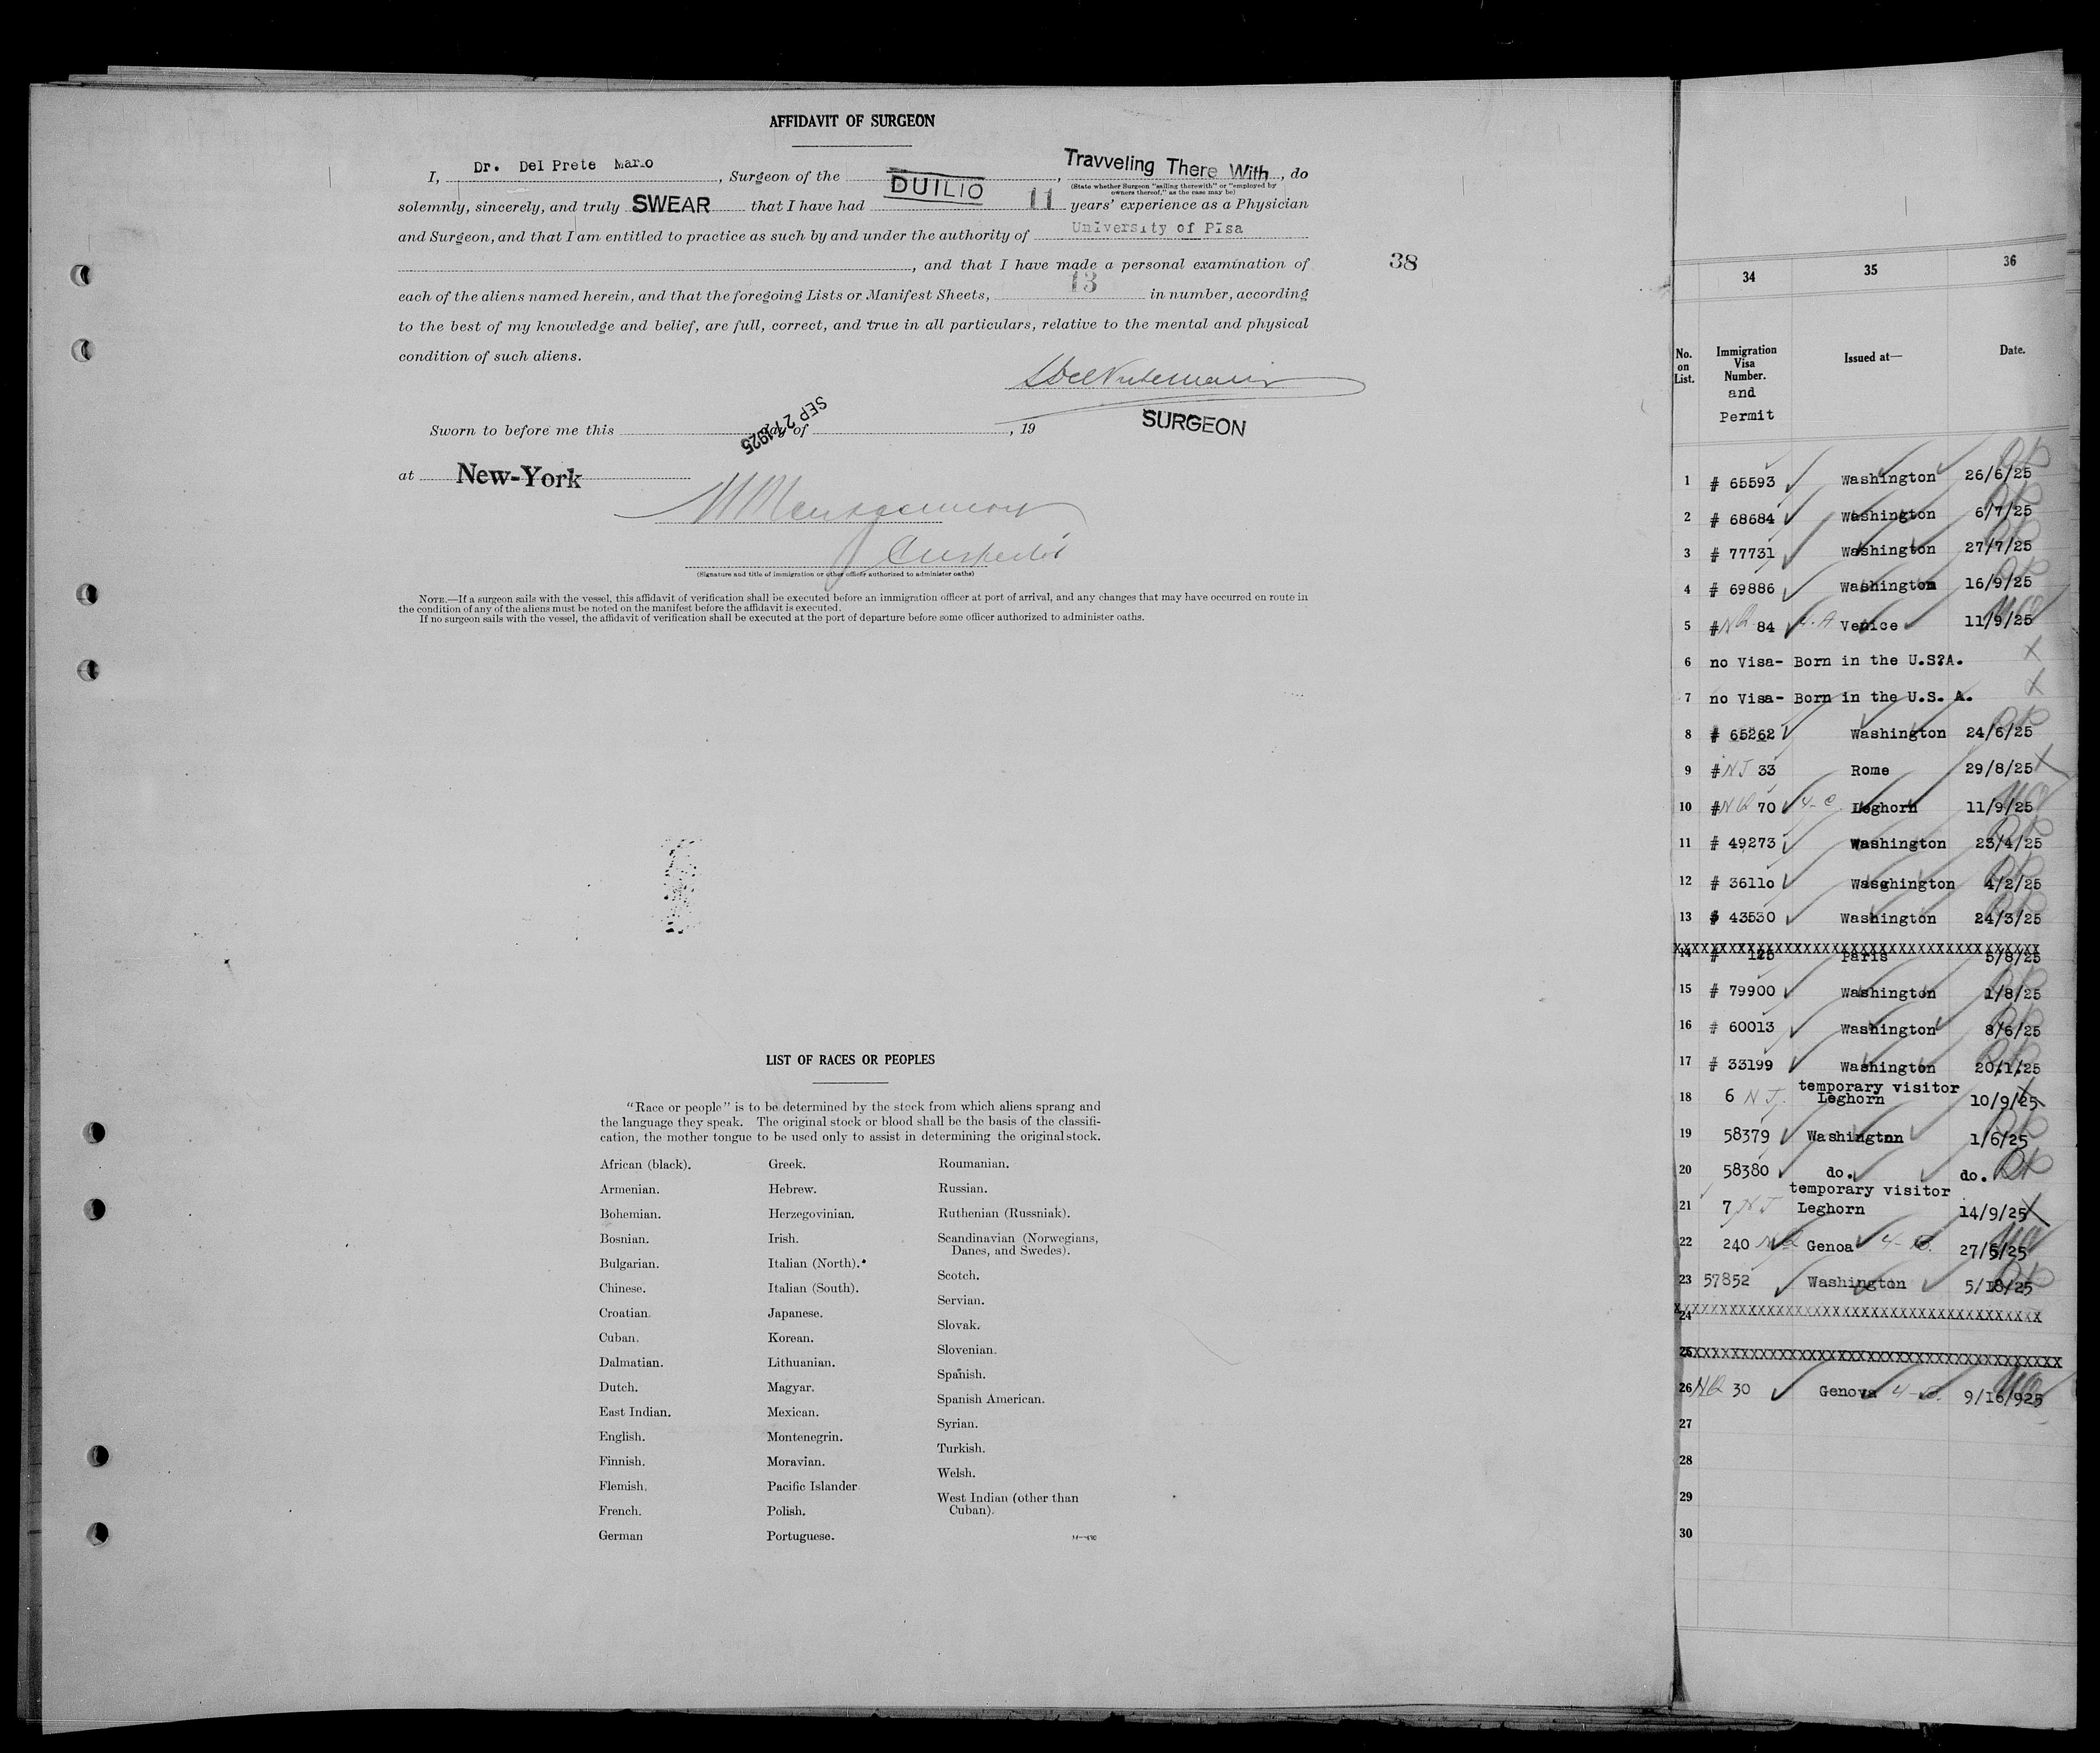 AFFIDAVIT OF SURGEON
I, Dr. Del Prete Mario, Surgeon of the DUILIO, Travveling There With, do
(State whether Surgeon "sailing therewith" or "employed by
owners thereof," as the case may be)
solemnly, sincerely, and truly SWEAR that I have had 11 years' experience as a Physician
and Surgeon, and that I am entitled to practice as such by and under the authority of University of Pisa
, and that I have made a personal examination of
38
each of the aliens named herein, and that the foregoing Lists or Manifest Sheets, 13 in number, according
to the best of my knowledge and belief, are full, correct, and true in all particulars, relative to the mental and physical
condition of such aliens.
SURGEON
Sworn to before me this day of SEP 27 1925, 19
at New-York
Montgomery
Inspector
(Signature and title of immigration or other officer authorized to administer oaths)
NOTE.—If a surgeon sails with the vessel, this affidavit of verification shall be executed before an immigration officer at port of arrival, and any changes that may have occurred en route in
the condition of any of the aliens must be noted on the manifest before the affidavit is executed.
If no surgeon sails with the vessel, the affidavit of verification shall be executed at the port of departure before some officer authorized to administer oaths.
LIST OF RACES OR PEOPLES
"Race or people" is to be determined by the stock from which aliens sprang and
the language they speak. The original stock or blood shall be the basis of the classifi-
cation, the mother tongue to be used only to assist in determining the original stock.
African (black).
Armenian.
Bohemian.
Bosnian.
Bulgarian.
Chinese.
Croatian.
Cuban.
Dalmatian.
Dutch.
East Indian.
English.
Finnish.
Flemish.
French.
German
Greek.
Hebrew.
Herzegovinian.
Irish.
Italian (North).
Italian (South).
Japanese.
Korean.
Lithuanian.
Magyar.
Mexican.
Montenegrin.
Moravian.
Pacific Islander
Polish.
Portuguese.
Roumanian.
Russian.
Ruthenian (Russniak).
Scandinavian (Norwegians,
Danes, and Swedes).
Scotch.
Servian.
Slovak.
Slovenian.
Spanish.
Spanish American.
Syrian.
Turkish.
Welsh.
West Indian (other than
Cuban).
34 35 36
No. on List. Immigration Visa Number. and Permit Issued at— Date.
1 # 65593 Washington 26/6/25
2 # 68684 Washington 6/7/25
3 # 77731 Washington 27/7/25
4 # 69886 Washington 16/9/25
5 # NQ 84 Venice 11/9/25
6 no Visa- Born in the U.S?A. X
7 no Visa- Born in the U.S. A. X
8 # 65262 Washington 24/6/25
9 # NJ 33 Rome 29/8/25 X
10 # NQ 70 4-C Leghorn 11/9/25
11 # 49273 Washington 23/4/25
12 # 36110 Wasghington 4/2/25
13 # 43530 Washington 24/3/25
14 # 125 Paris 5/8/25
15 # 79900 Washington 1/8/25
16 # 60013 Washington 8/6/25
17 # 33199 Washington 20/1/25
temporary visitor
18 6 NJ. Leghorn 10/9/25
19 58379 Washington 1/6/25
20 58380 do. do.
temporary visitor
21 7 NJ Leghorn 14/9/25
22 240 NQ Genoa 27/6/25
23 57852 Washington 5/18/25
24
25
26 NQ 30 Genova 9/16/925
27
28
29
30